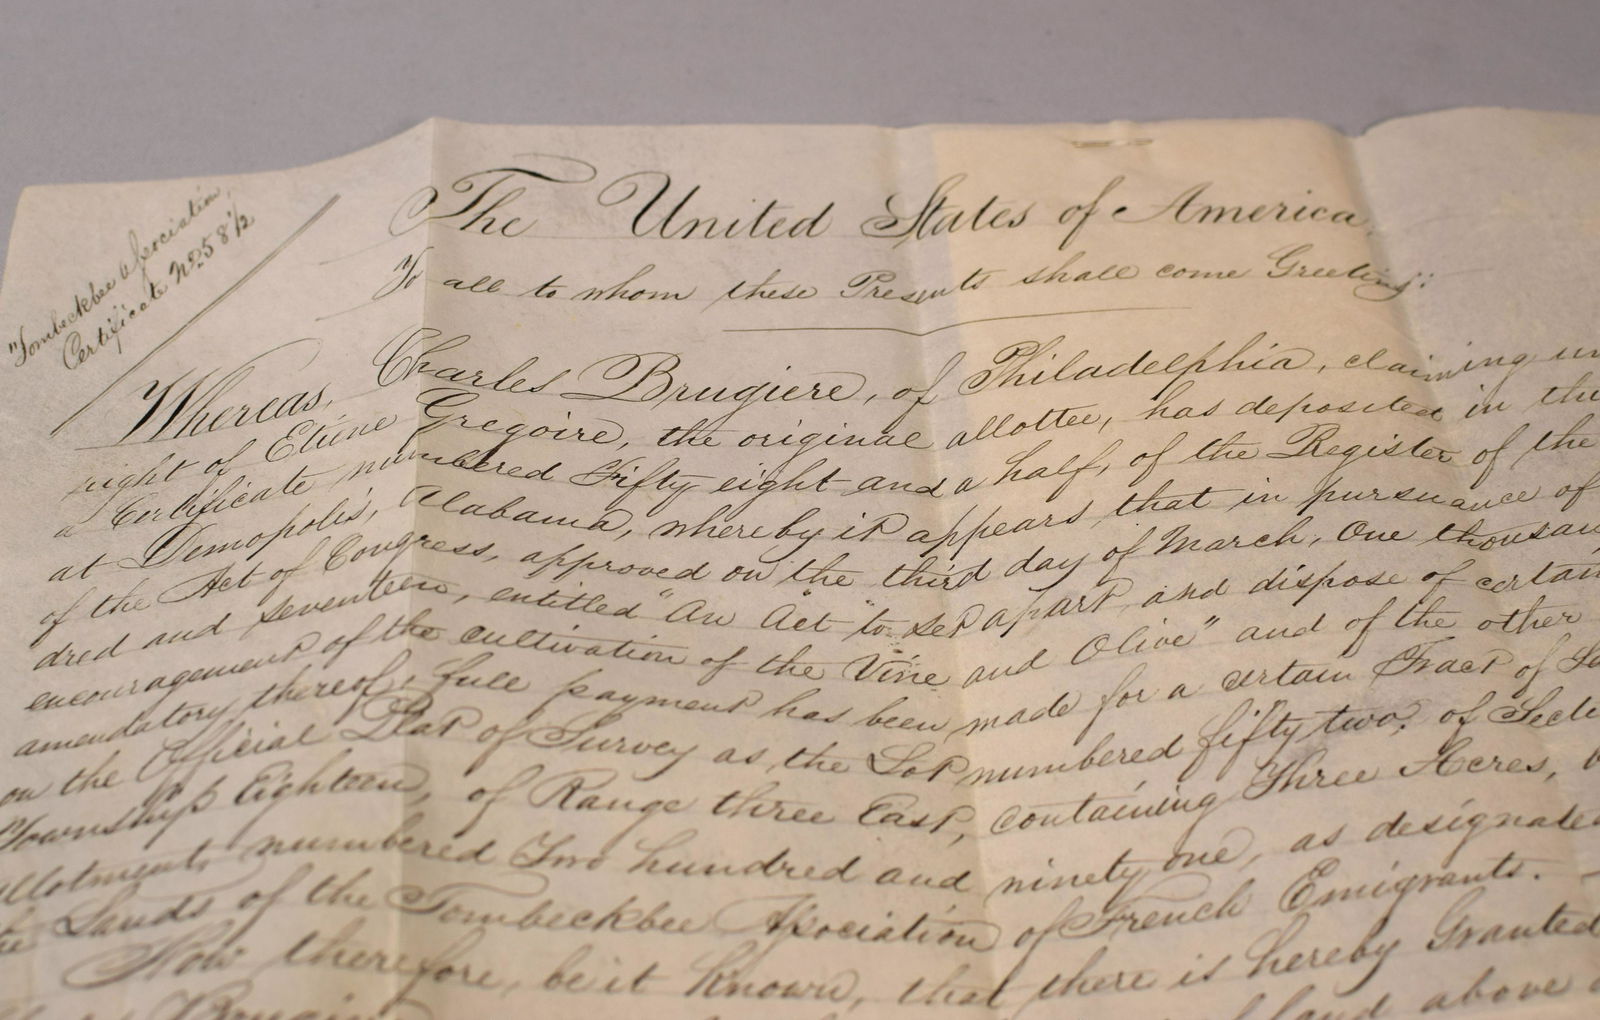 Tombeckbee Association
Certificate No. 58 1/2
The United States of America.
To all to whom these Presents shall come Greeting:
Whereas, Charles Brugiere, of Philadelphia, claiming
right of Etiene Gregoire, the original allottee, has deposited in the
a Certificate numbered Fifty eight and a half, of the Register of the
at Demopolis, Alabama, whereby it appears that in pursuance of
of the Act of Congress, approved on the third day of March, One thousan
dred and seventeen, entitled "An Act" to set apart and dispose of certain
encouragement of the cultivation of the Vine and Olive" and of the other
amendatory thereof, full payment has been made for a certain Tract of
on the Official Plat of Survey as the Lot numbered fifty two, of Secti
Township Eighteen, of Range three East, containing Three Acres,
allotment numbered Two hundred and ninety one, as designated
the Lands of the Tombeckbee Association of French Emigrants.
Now therefore, be it known, that there is hereby Granted
Brugiere land above